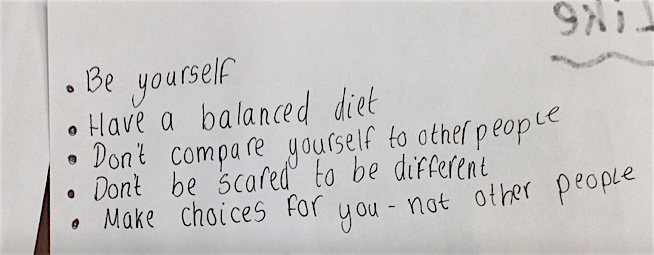 Like
• Be yourself
• Have a balanced diet
• Don't compare yourself to other people
• Dont be scared to be different
• Make choices for you - not other people